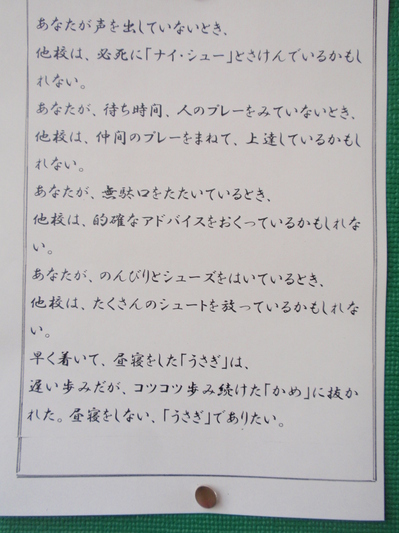 あなたが声を出していないとき、
他校は、必死に「ナイ・シュー」とさけんでいるかもし
れない。
あなたが、待ち時間、人のプレーをみていないとき、
他校は、仲間のプレーをまねて、上達しているかもし
れない。
あなたが、無駄口をたたいているとき、
他校は、的確なアドバイスをおくっているかもしれな
い。
あなたが、のんびりとシューズをはいているとき、
他校は、たくさんのシュートを放っているかもしれな
い。
早く着いて、昼寝をした「うさぎ」は、
遅い歩みだが、コツコツ歩み続けた「かめ」に抜か
れた。昼寝をしない、「うさぎ」でありたい。